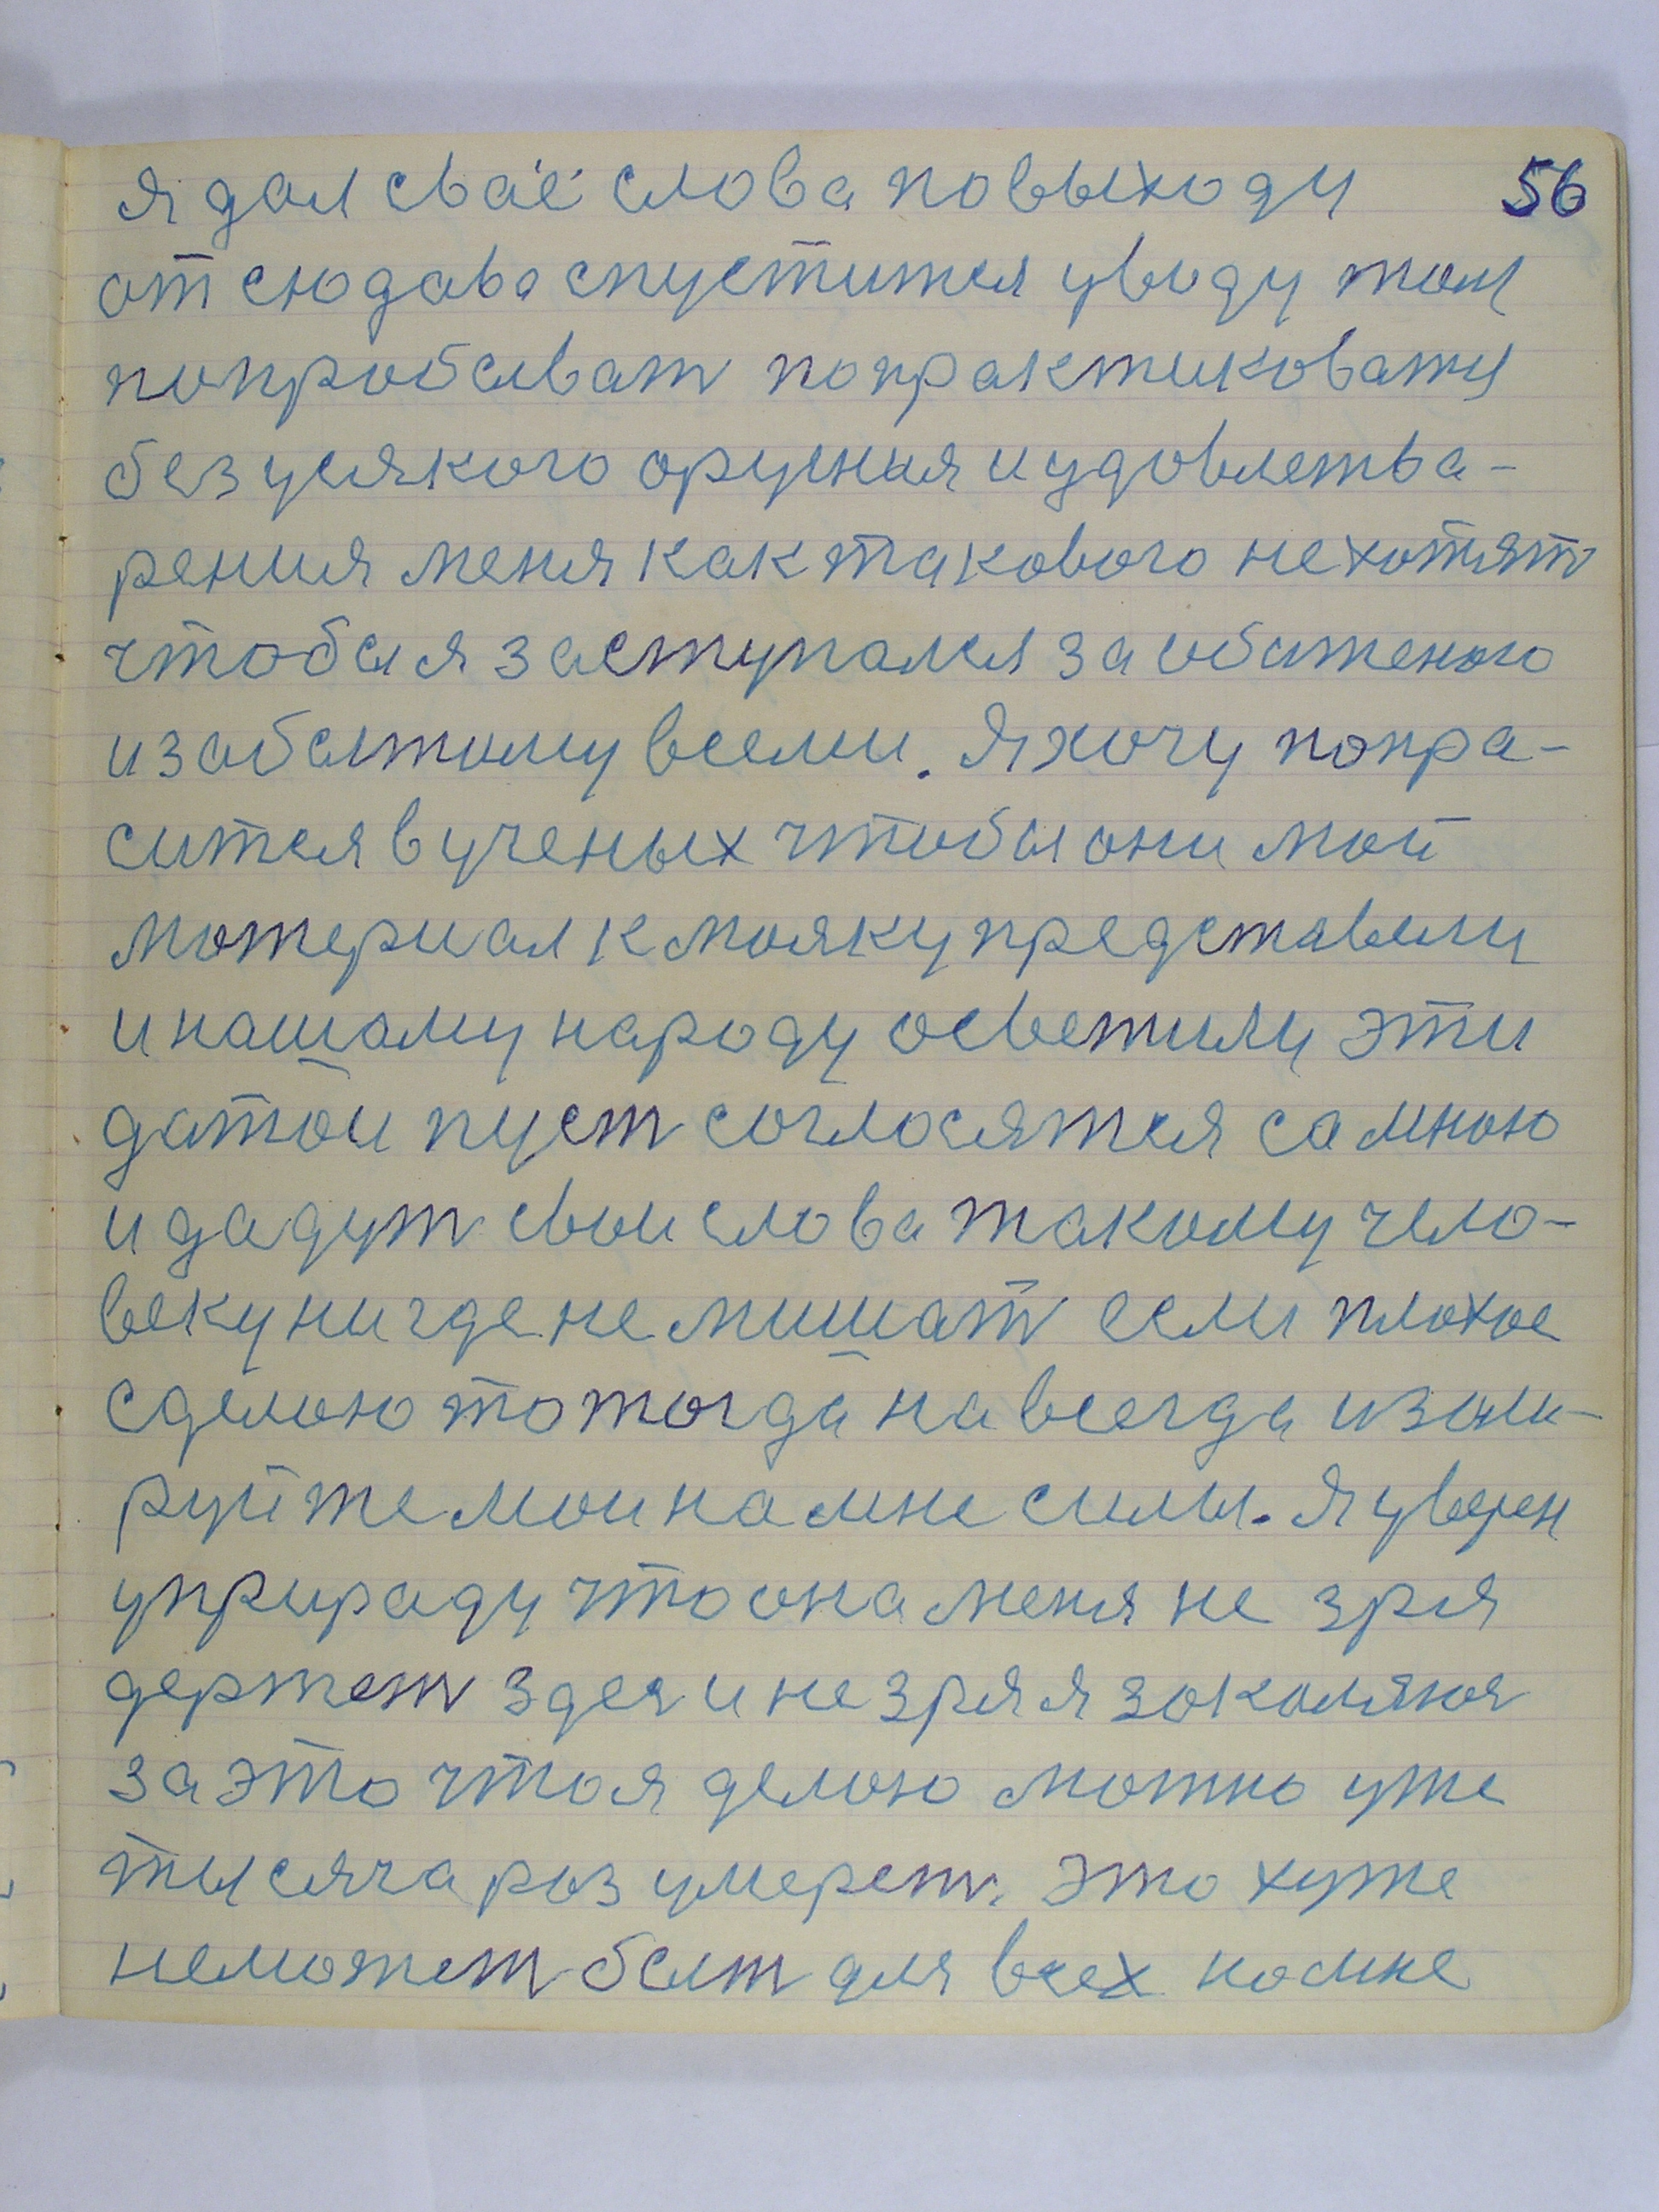 я дал сваё слова по выходу 56
отсюдава спустится у воду там
попробыват попрактиковаты
без усякого оружия и удовлетва-
рения меня как такового не хотят
чтобы я заступался за обиженого
и забытому всеми. Я хочу попра-
сится в ученых чтобы они мой
мотериал к мояку представили
и нашаму народу осветили эти
датой пуст согласятся са мною
и дадут свои слова такому чело-
веку нигде не мишат если плохое
сделою то тогда навсегда изали-
руйте мои на мне силы. Я уверен
у прираду что она меня не зря
держет здея и не зря я закаляюя
за это что я делою можно уже
тысяча раз умерет. Это хуже
неможет быт для всех но мне